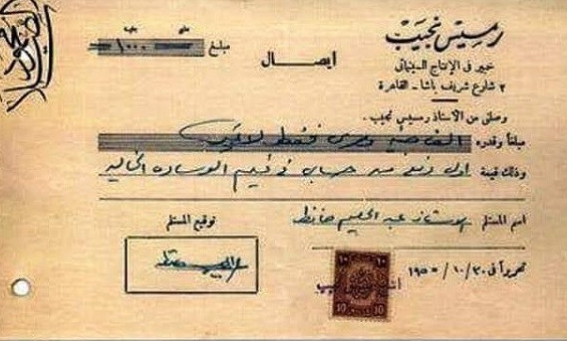 رمسيس نجيب
خبير فى الإنتاج السينمائى
٢ شارع شريف باشا - القاهرة
ايصال
مبلغ ١٠٠٠
وصلنى من الاستاذ رمسيس نجيب .
مبلغا وقدره الف جنيه مصرى فقط لاغير
وذلك قيمة اول دفعة من حسابى فى فيلم الوسادة الخالية
اسم المستلم الاستاذ عبد الحليم حافظ
توقيع المستلم
تحريرا فى ٣٠ / ١٠ / ١٩٥٥
١٠ ١٠
10 10